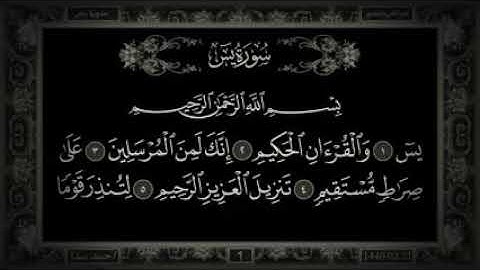 سُورَةُ يسٓ
بِسْمِ ٱللَّهِ ٱلرَّحْمَٰنِ ٱلرَّحِيمِ
يسٓ ١ وَٱلْقُرْءَانِ ٱلْحَكِيمِ ٢ إِنَّكَ لَمِنَ ٱلْمُرْسَلِينَ ٣ عَلَىٰ
صِرَٰطٍ مُّسْتَقِيمٍ ٤ تَنزِيلَ ٱلْعَزِيزِ ٱلرَّحِيمِ ٥ لِتُنذِرَ قَوْمًا
1